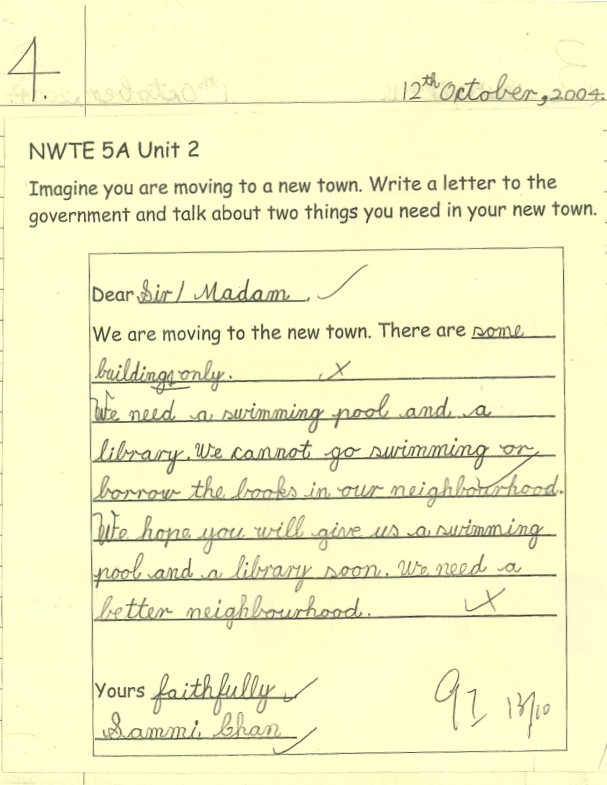 4.
12th October, 2004.
NWTE 5A Unit 2
Imagine you are moving to a new town. Write a letter to the
government and talk about two things you need in your new town.
Dear Sir / Madam,
We are moving to the new town. There are some
buildings only.
We need a swimming pool and a
library. We cannot go swimming or
borrow the books in our neighbourhood.
We hope you will give us a swimming
pool and a library soon. We need a
better neighbourhood.
Yours faithfully
Sammi Chan
13/10